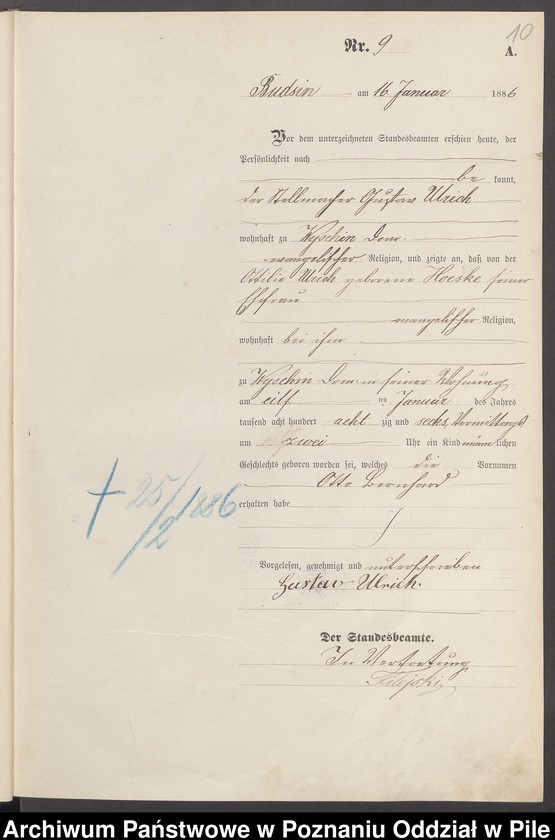 10
Nr. 9
A.
Budsin am 16 Januar 1886
Vor dem unterzeichneten Standesbeamten erschien heute, der
Persönlichkeit nach
be kannt,
der Stellmacher Gustav Ulrich
wohnhaft zu Wyschin Dom.
evangelischer Religion, und zeigte an, daß von der
Ottilie Ulrich geborene Hoeske seiner
Ehefrau
evangelischer Religion,
wohnhaft bei ihm
zu Wyschin Dom: in seiner Wohnung
am eilf ten Januar des Jahres
tausend acht hundert acht zig und sechs, Vormittags
um zwei Uhr ein Kind männ lichen
Geschlechts geboren worden sei, welches die Vornamen
Otto Bernhard
erhalten habe
+ 25/2 1886
Vorgelesen, genehmigt und unterschrieben
Gustav Ulrich.
Der Standesbeamte.
In Vertretung
Archiwum Państwowe w Poznaniu Oddział w Pile